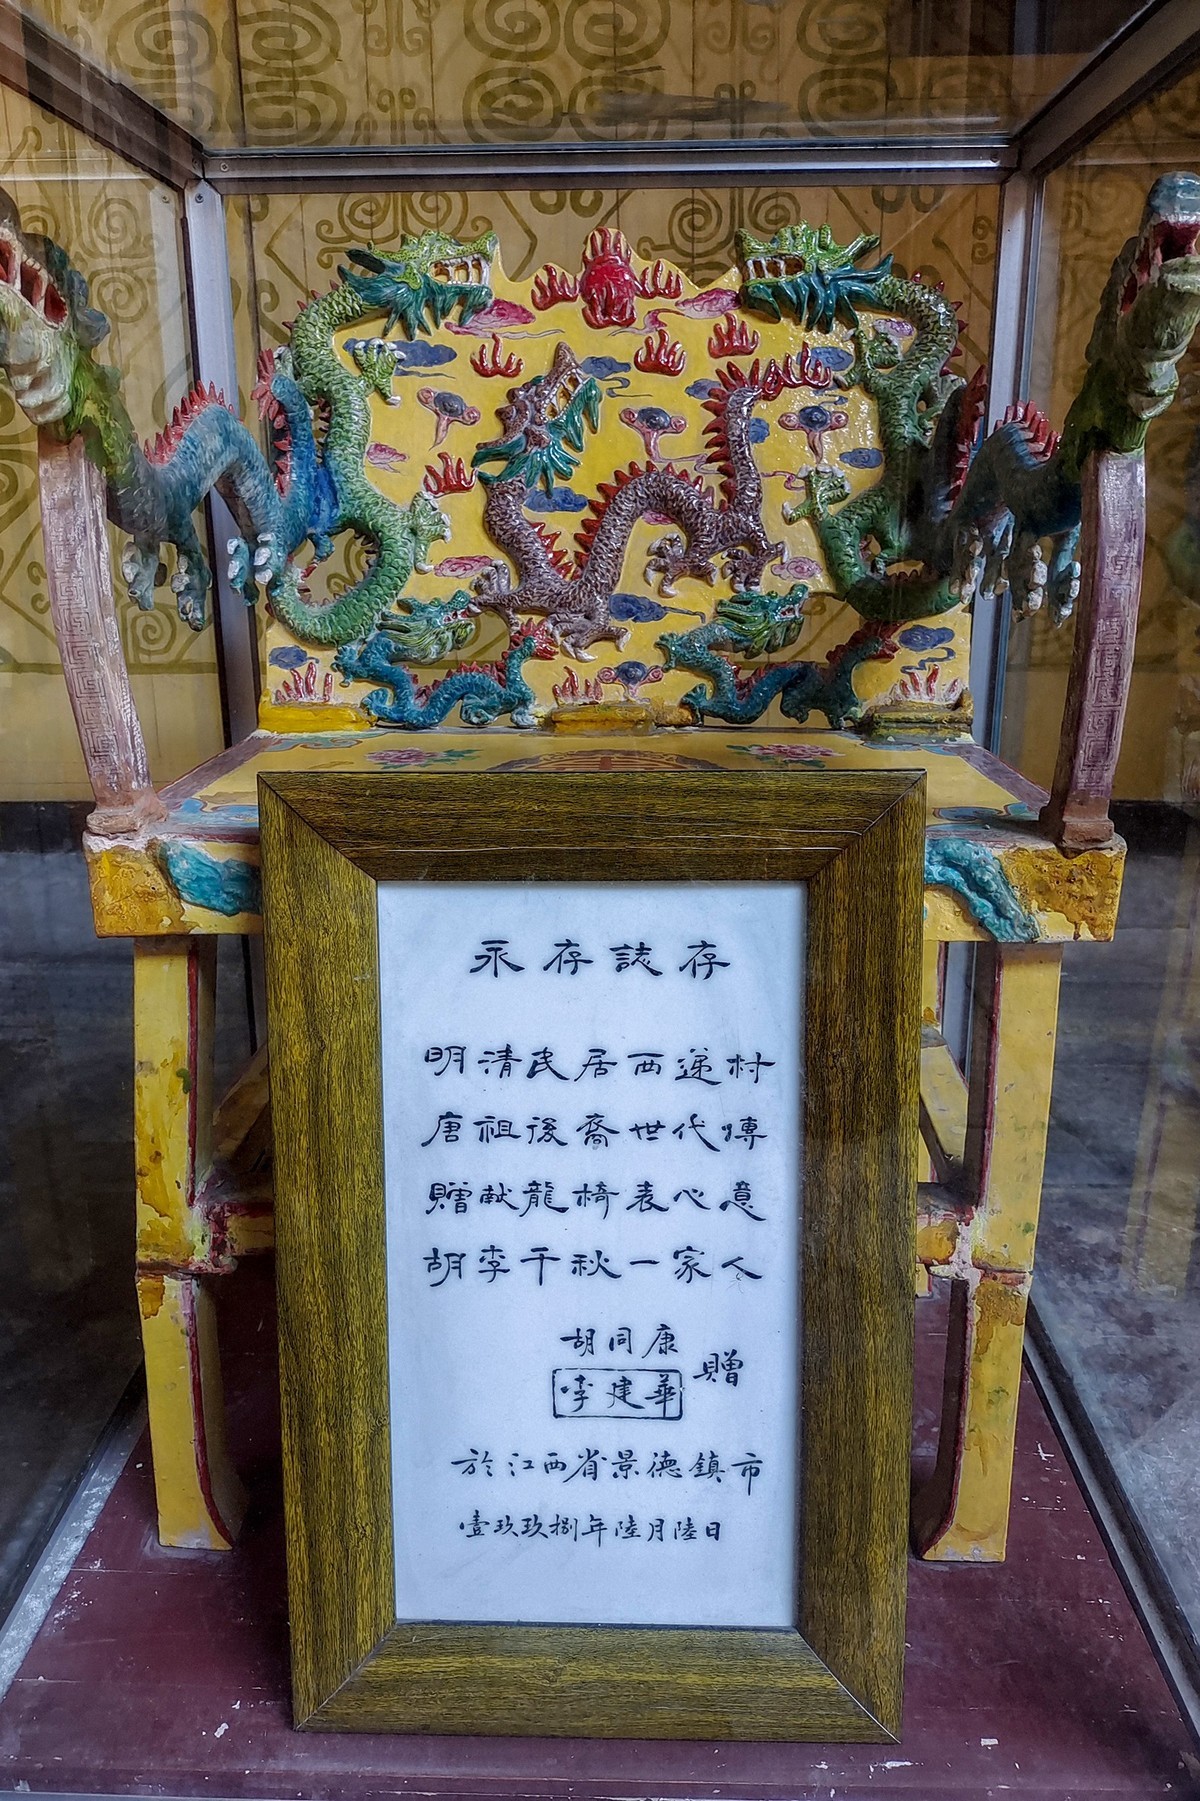 永存誌存
明清民居西递村
唐祖後裔世代傳
贈献龍椅表心意
胡李千秋一家人
胡同康
李建華
贈
於江西省景德鎮市
壹玖玖捌年陸月陸日